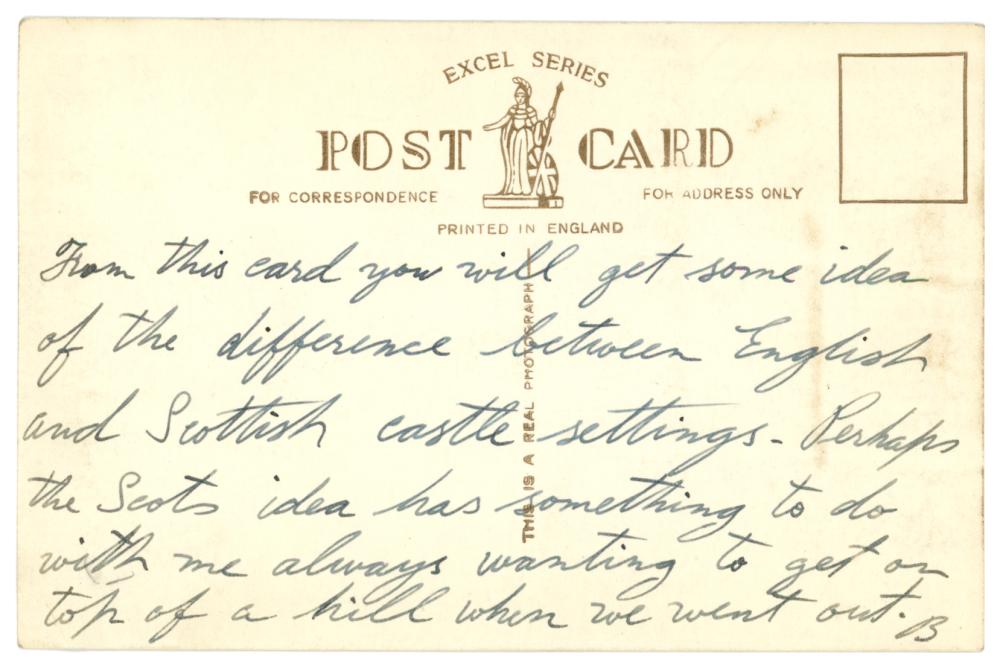 EXCEL SERIES
POST CARD
FOR CORRESPONDENCE
FOR ADDRESS ONLY
PRINTED IN ENGLAND
THIS IS A REAL PHOTOGRAPH
From this card you will get some idea
of the difference between English
and Scottish castle settings - Perhaps
the Scots idea has something to do
with me always wanting to get on
top of a hill when we went out. B